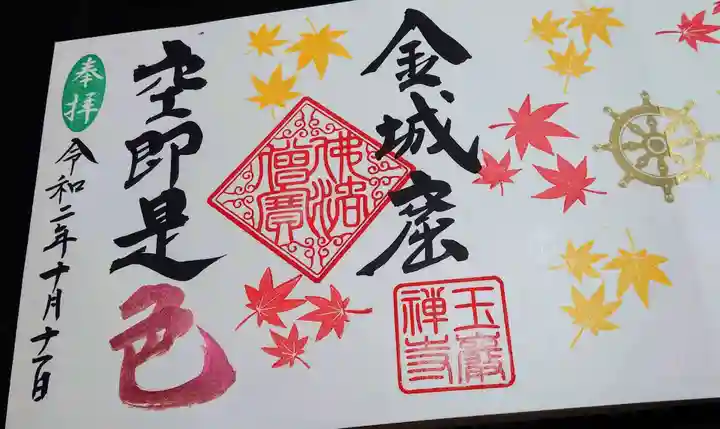 金城窟
玉巖
禅寺
佛法
僧寳
空即是色
奉拝
令和二年十月十一日